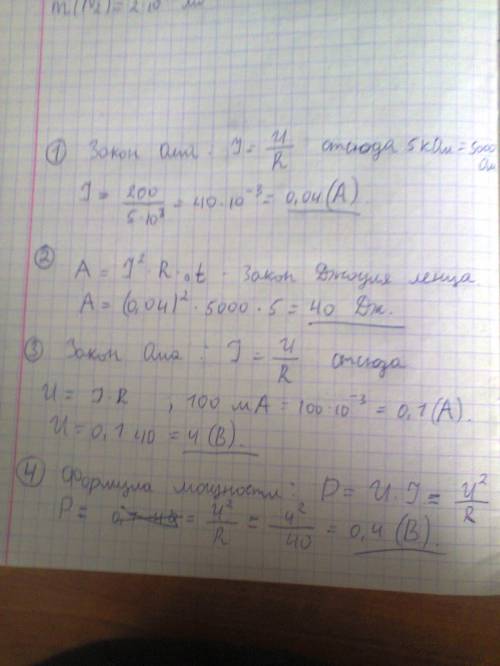 ① Закон Ома: I = U/R отсюда 5 кОм = 5000 Ом
I = 200/(5·10³) = 40·10⁻³ = 0,04 (A)
② A = I² · R · t - Закон Джоуля Ленца.
A = (0,04)² · 5000 · 5 = 40 Дж.
③ Закон Ома: I = U/R отсюда
U = I·R , 100 мА = 100·10⁻³ = 0,1 (A).
U = 0,1·40 = 4 (В).
④ Формула мощности: P = U·I = U²/R
P = = U²/R = 4²/40 = 0,4 (В).